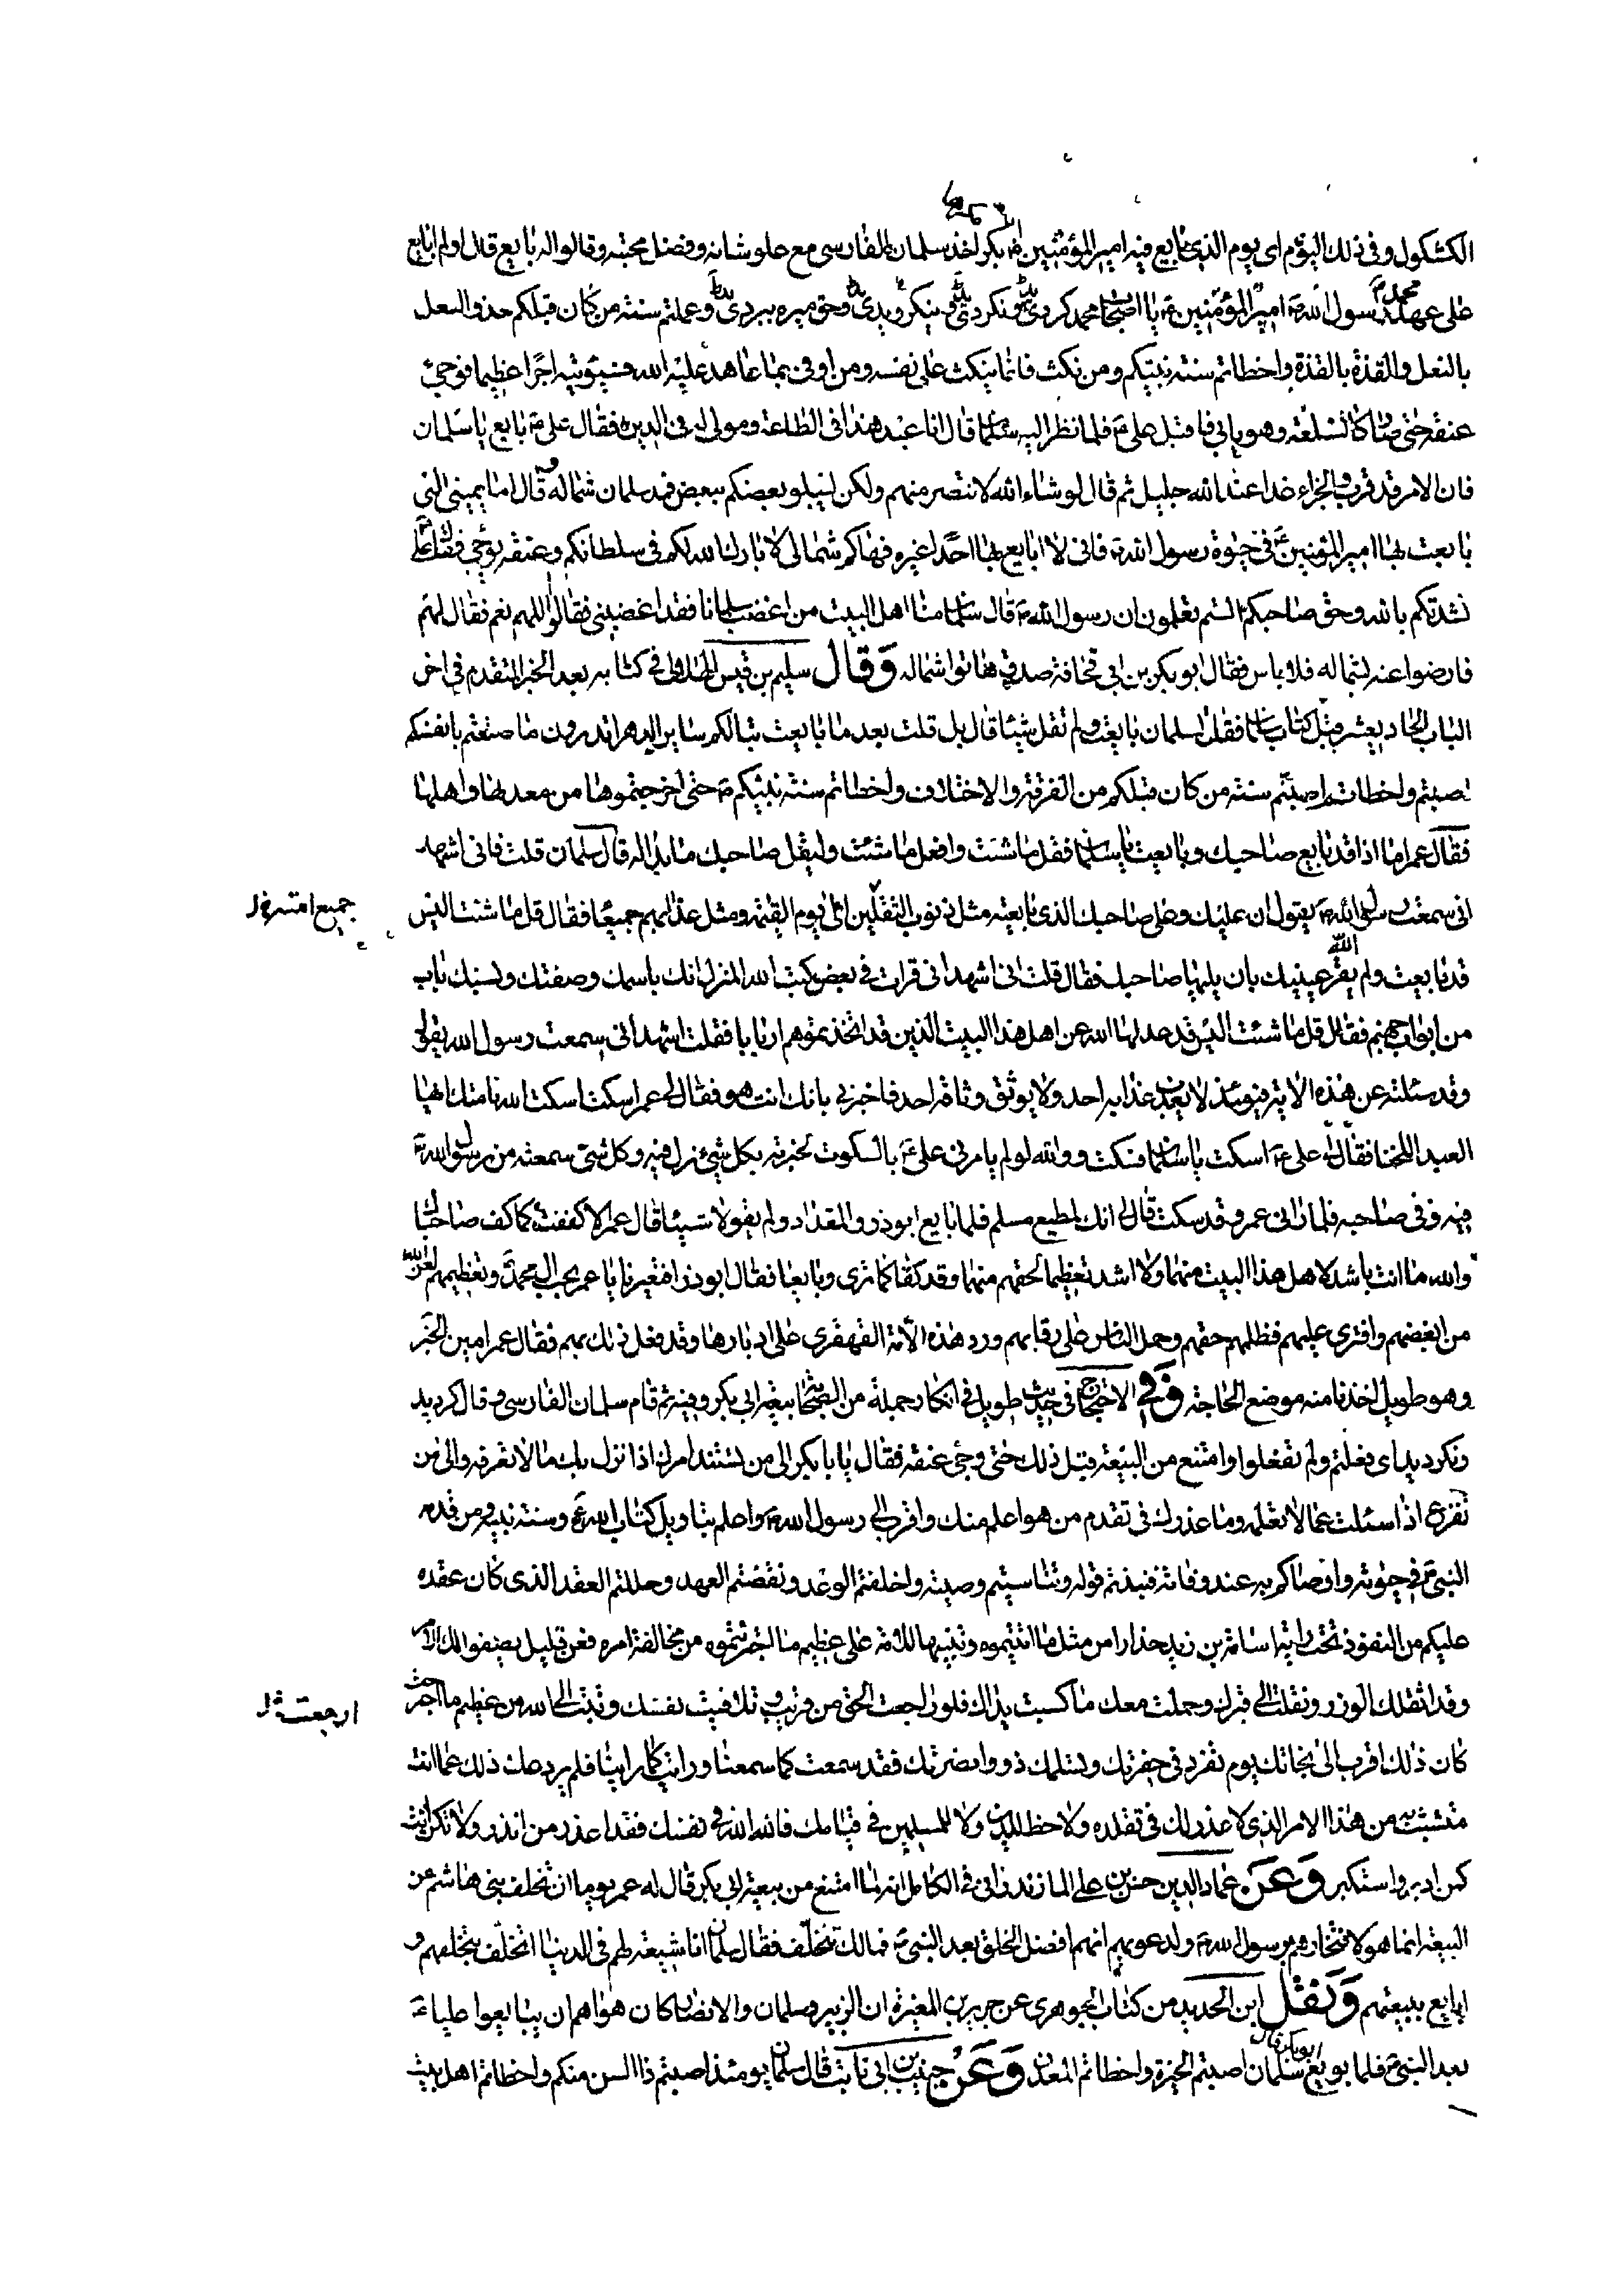 الكشكول وفى ذلك اليوم اى يوم الذى بايع فيه امير المؤمنين ابا بكر اخذ سلمان الفارسى مع علو شانه وفضل محبته وقالوا له بايع قال اولم ابايع
على عهد محمد رسول الله ص امير المؤمنين ع يا اصحاب محمد كرديد ونكرديد وحق ميره ببرديد وعملتم سنة من كان قبلكم حذو النعل
بالنعل والقذة بالقذة واخطاتم سنة نبيكم ومن نكث فانما ينكث على نفسه ومن اوفى بما عاهد عليه الله فسيؤتيه اجرا عظيما فوجئ
عنقه حتى صار كالسلعة وهو يابى فاقبل على ع فلما نظر اليه سلمان قال انا عبد هذا فى الطاعة ومولى له فى الدين فقال على ع بايع يا سلمان
فان الامر قد قرب والجزاء غدا عند الله جليل ثم قال لو شاء الله لانتصر منهم ولكن ليبلو بعضكم ببعض فمد سلمان شماله وقال اما يمينى التى
بايعت بها امير المؤمنين ع فى حيوة رسول الله ص فانى لا ابايع بها احدا غيره فهاكم شمالى لا بارك الله لكم فى سلطانكم وعنقه يوجئ فقال على ع
نشدتكم بالله وحق صاحبكم الستم تعلمون ان رسول الله ص قال سلمان منا اهل البيت من اغضب سلمانا فقد اغضبنى فقالوا اللهم نعم فقال لهم
فارضوا عنه بشماله فلا باس فقال ابو بكر بن ابى قحافة صدق هاتوا شماله وقال سليم بن قيس الهلالى فى كتابه بعد الخبر المتقدم فى اخر
الباب الحاد يعشر وقبل كتاب سلمان فقلت لسلمان بايعت ولم تقل شيئا قال بل قلت بعد ما بايعت تبا لكم ساير الدهر اتدرون ما صنعتم بانفسكم
اصبتم واخطاتم اصبتم سنة من كان قبلكم من الفرقة والاختلاف واخطاتم سنة نبيكم ص حتى اخرجتموها من معدنها واهلها
فقال عمر اما اذا قد بايع صاحبك وبايعت يا سلمان فقل ما شئت وافعل ما شئت وليقل صاحبك ما بدا له قال سلمان قلت فانى اشهد
انى سمعت رسول الله ص يقول ان عليك وعلى صاحبك الذى بايعته مثل ذنوب الثقلين الى يوم القيمة ومثل عذابهم جميعا فقال قل ما شئت اليس
جميع امته
قد بايعت ولم يقر الله عينيك بان يليها صاحبك فقال قلت انى اشهد انى قرات فى بعض كتب الله المنزل انك باسمك وصفتك ونسبك باب
من ابواب جهنم فقال قل ما شئت اليس قد عدلها الله عن اهل هذا البيت الذين قد اتخذتموهم اربابا فقلت اشهد انى سمعت رسول الله يقول
وقد سئلته عن هذه الاية فيومئذ لا يعذب عذابه احد ولا يوثق وثاقه احد فاخبرنى بانك انت هو فقال لى عمر اسكت اسكت الله نامتك ايها
العبد اللخنا فقال لى على ع اسكت يا سلمان فسكت ووالله لو لم يامرنى على ع بالسكوت لخبرته بكل شئ نزل فيه وكل شئ سمعته من رسول الله ص
فيه وفى صاحبه فلما رانى عمر وقد سكت قال لى انك لمطيع مسلم فلما بايع ابوذر والمقداد ولم يقولا شيئا قال عمر الا كففت كما كف صاحباك
والله ما انت باشد لاهل هذا البيت منهما ولا اشد تعظيما لحقهم منهما وقد كفا كما ترى وبايعا فقال ابوذر افتعيرنا يا عمر بحب ال محمد ص وتعظيمهم لعن الله
من ابغضهم وافترى عليهم فظلمهم حقهم وحمل الناس على رقابهم ورد هذه الامة القهقرى على ادبارها وقد فعل ذلك بهم فقال عمر امين الخبر
وهو طويل اخذنا منه موضع الحاجة وفى الاحتجاج فى حديث طويل فى انكار جملة من الصحابة بيعة ابى بكر وفيه ثم قام سلمان الفارسى وقال كرديد
ونكرديد اى فعلتم ولم تفعلوا وامتنع من البيعة قبل ذلك حتى وجئ عنقه فقال يا ابا بكر الى من تستند امرك اذا نزل بك ما لا تعرفه والى من
تفزع اذا سئلت عما لا تعلمه وما عذرك فى تقدم من هو اعلم منك واقرب الى رسول الله ص واعلم بتاويل كتاب الله عز وسنة نبيه ومن قدمه
النبى ص فى حيوته واوصاكم به عند وفاته فنبذتم قوله وتناسيتم وصيته واخلفتم الوعد ونقضتم العهد وحللتم العقد الذى كان عقده
عليكم من النفوذ تحت راية اسامة بن زيد حذارا من مثل ما اتيتموه وتنبيها للامة على عظيم ما اجترمتموه من مخالفة امره فعن قليل يصفوا لك الامر
وقد اثقلك الوزر ونقلت الى قبرك وحملت معك ما كسبت يداك فلو راجعت الحق من قريب وتلافيت نفسك وتبت الى الله من عظيم ما اجترمت
ارجعت
كان ذلك اقرب الى نجاتك يوم تفرد فى حفرتك ويسلمك ذووا نصرتك فقد سمعت كما سمعنا ورايت كما راينا فلم يردعك ذلك عما انت
متشبث به من هذا الامر الذى لا عذر لك فى تقلده ولا حظ للدين ولا للمسلمين فى قيامك فالله الله فى نفسك فقد اعذر من انذر ولا تكن انت
كمن ادبر واستكبر وعن عماد الدين حسن بن على المازندرانى فى الكامل انه لما امتنع من بيعة ابى بكر قال له عمر يوما ان تخلف بنى هاشم عن
البيعة انما هو لافتخارهم برسول الله ص ولدعويهم انهم افضل الخلق بعد النبى ص فمالك تتخلف فقال سلمان انا شيعة لهم فى الدنيا اتخلف بتخلفهم و
ابايع ببيعتهم ونقل ابن الحديد من كتاب الجوهرى عن جرير بن المغيرة ان الزبير وسلمان والانصار كان هواهم ان يبايعوا عليا ع
بعد النبى ص فلما بويع ابو بكر قال سلمان اصبتم الخيرة واخطاتم المعدن وعن حبيب بن ابى ثابت قال سلمان يومئذ اصبتم ذا السن منكم واخطاتم اهل بيت